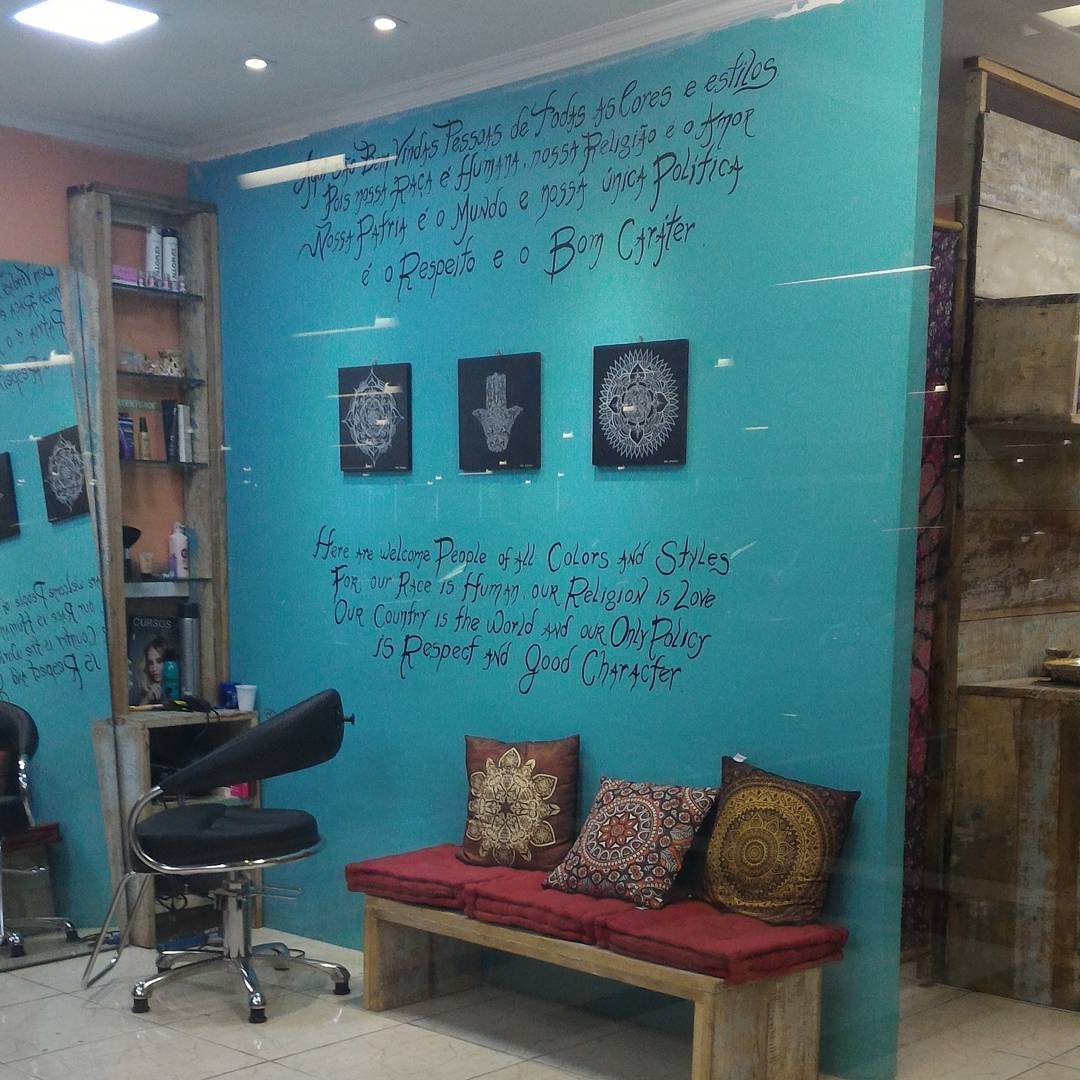 Aqui são Bem Vindas Pessoas de Todas as Cores e estilos
Pois nossa Raça é Humana, nossa Religião é o Amor
Nossa Patria é o Mundo e nossa única Política
é o Respeito e o Bom Caráter
Here are welcome People of all Colors and Styles
For our Race is Human, our Religion is Love
Our Country is the World and our Only Policy
is Respect and Good Character
CURSOS